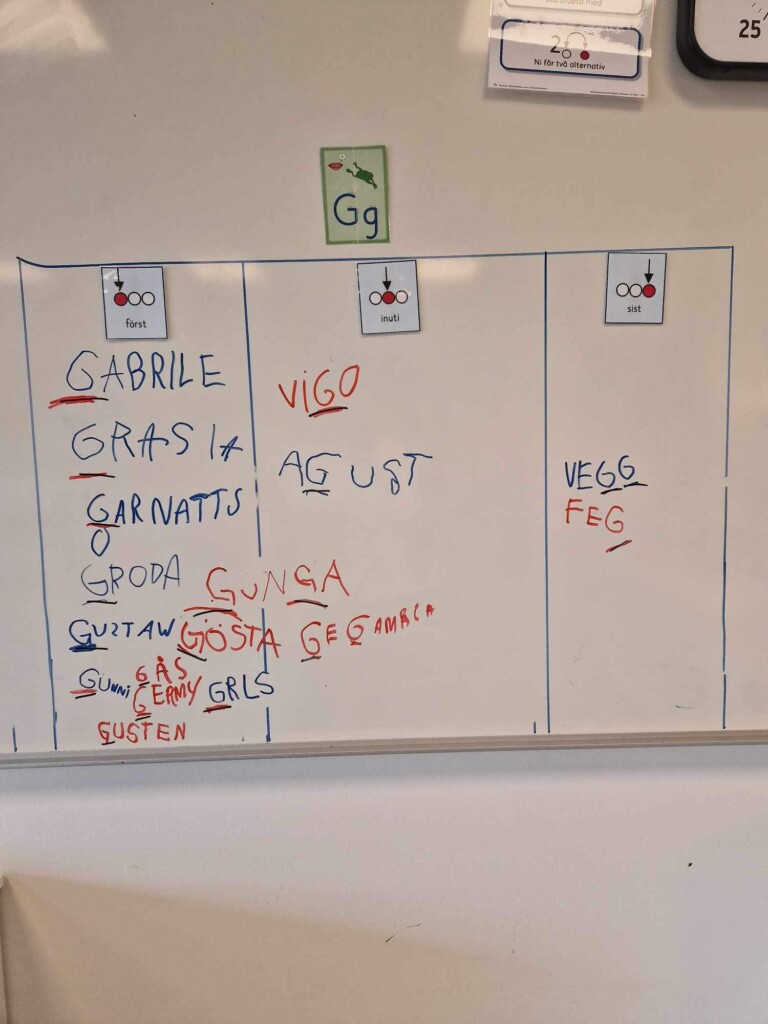 2
Ni får två alternativ
25
Gg
först
inuti
sist
GABRILE
GRASIA
GARNATTS
O
GRODA
GUSTAW
GUNNi
GÅS
GERMY
GRLS
GUSTEN
GUNGA
GÖSTA
GE GAMBIA
ViGO
AGUST
VEGG
FEG